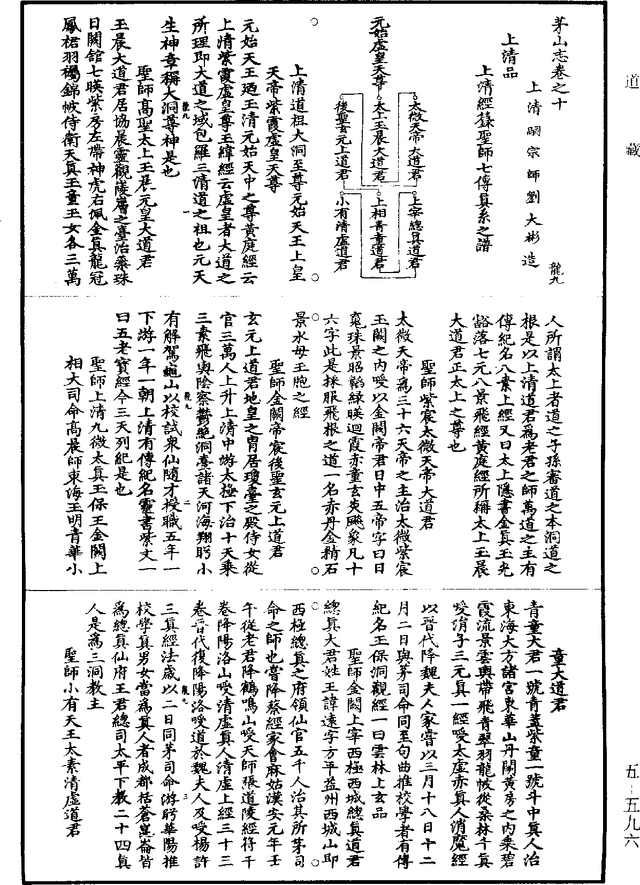 道藏
五-五九六
茅山志卷之十
龍九
上清嗣宗師劉大彬造
上清品
上清經籙聖師七傳真系之譜
元始虛皇天尊
太微天帝大道君
太上玉晨大道君
後聖玄元上道君
上宰總真道君
上相青童道君
小有清虛道君
上清道祖大洞至尊元始天王上皇
天帝紫霞虛皇天尊
元始天王迺玉清元始天中之尊黃庭經云
上清紫霞虛皇尊玉緯經云虛皇者大道之
所理即大道之域包羅三清道之祖也元天
生神章稱大洞尊神是也
聖師高聖太上玉晨元皇大道君
玉晨大道君居協晨靈觀陵層之臺治蘂珠
日闕舘七暎紫房左帶神虎右佩金真龍冠
鳳裙羽褐錦帔侍衛天真玉童玉女各三萬
人所謂太上者道之子孫審道之本洞道之
根是以上清道君爲老君之師萬道之主有
傳紀名八素上經又曰太上隱書金真玉光
豁落七元八景飛經黃庭經所稱太上玉晨
大道君正太上之尊也
聖師紫宸太微天帝大道君
太微天帝爲三十六天帝之主治太微紫宸
玉闕之內受以金闕帝君日中五帝字曰日
䰟珠景昭韜綠暎迴霞赤童玄炎飈象凡十
六字此是採服飛根之道一名赤丹金精石
景水母玉胞之經
聖師金闕帝宸後聖玄元上道君
玄元上道君地皇之胄居瓊臺之殿侍女從
官三萬人上升上清中游太極下治十天乘
三素飛輿陰察鬱絶洞臺諸天河海翔眄小
有解駕龜山以校試衆仙隨才授職五年一
下游一年一朝上清有傳紀名靈書紫文一
曰五老寶經今三天列紀是也
聖師上清九微太真玉保王金闕上
相大司命高晨師東海王明青華小
童大道君
青童大君一號青蓋紫童一號斗中真人治
東海大方諸宮東華山丹闕黃房之內乘碧
霞流景雲輿帶飛青翠羽龍帔從桑林千真
受涓子三元真一經受太虛赤真人消魔經
以晉代降魏夫人家嘗以三月十八日十二
月二日與茅司命同至句曲推校學者有傳
紀名玉保洞觀經一曰雲林上玄品
聖師金闕上宰西極西城總真道君
總真大君姓王諱遠字方平益州西城山即
西極總真之府領仙官五千人治其所茅司
命之師也嘗降蔡經家會麻姑漢安元年壬
午從老君降鶴鳴山受天師張道陵經符千
卷降陽洛山受清虛真人清虛上經三十三
卷晉代復降陽洛受道於魏夫人及受楊許
三真經法歲以二日同茅司命游眄華陽推
校學真男女當爲真人者成都括蒼崑崙皆
爲總真仙府王君總司太平下教二十四真
人是爲三洞教主
聖師小有天王太素清虛道君